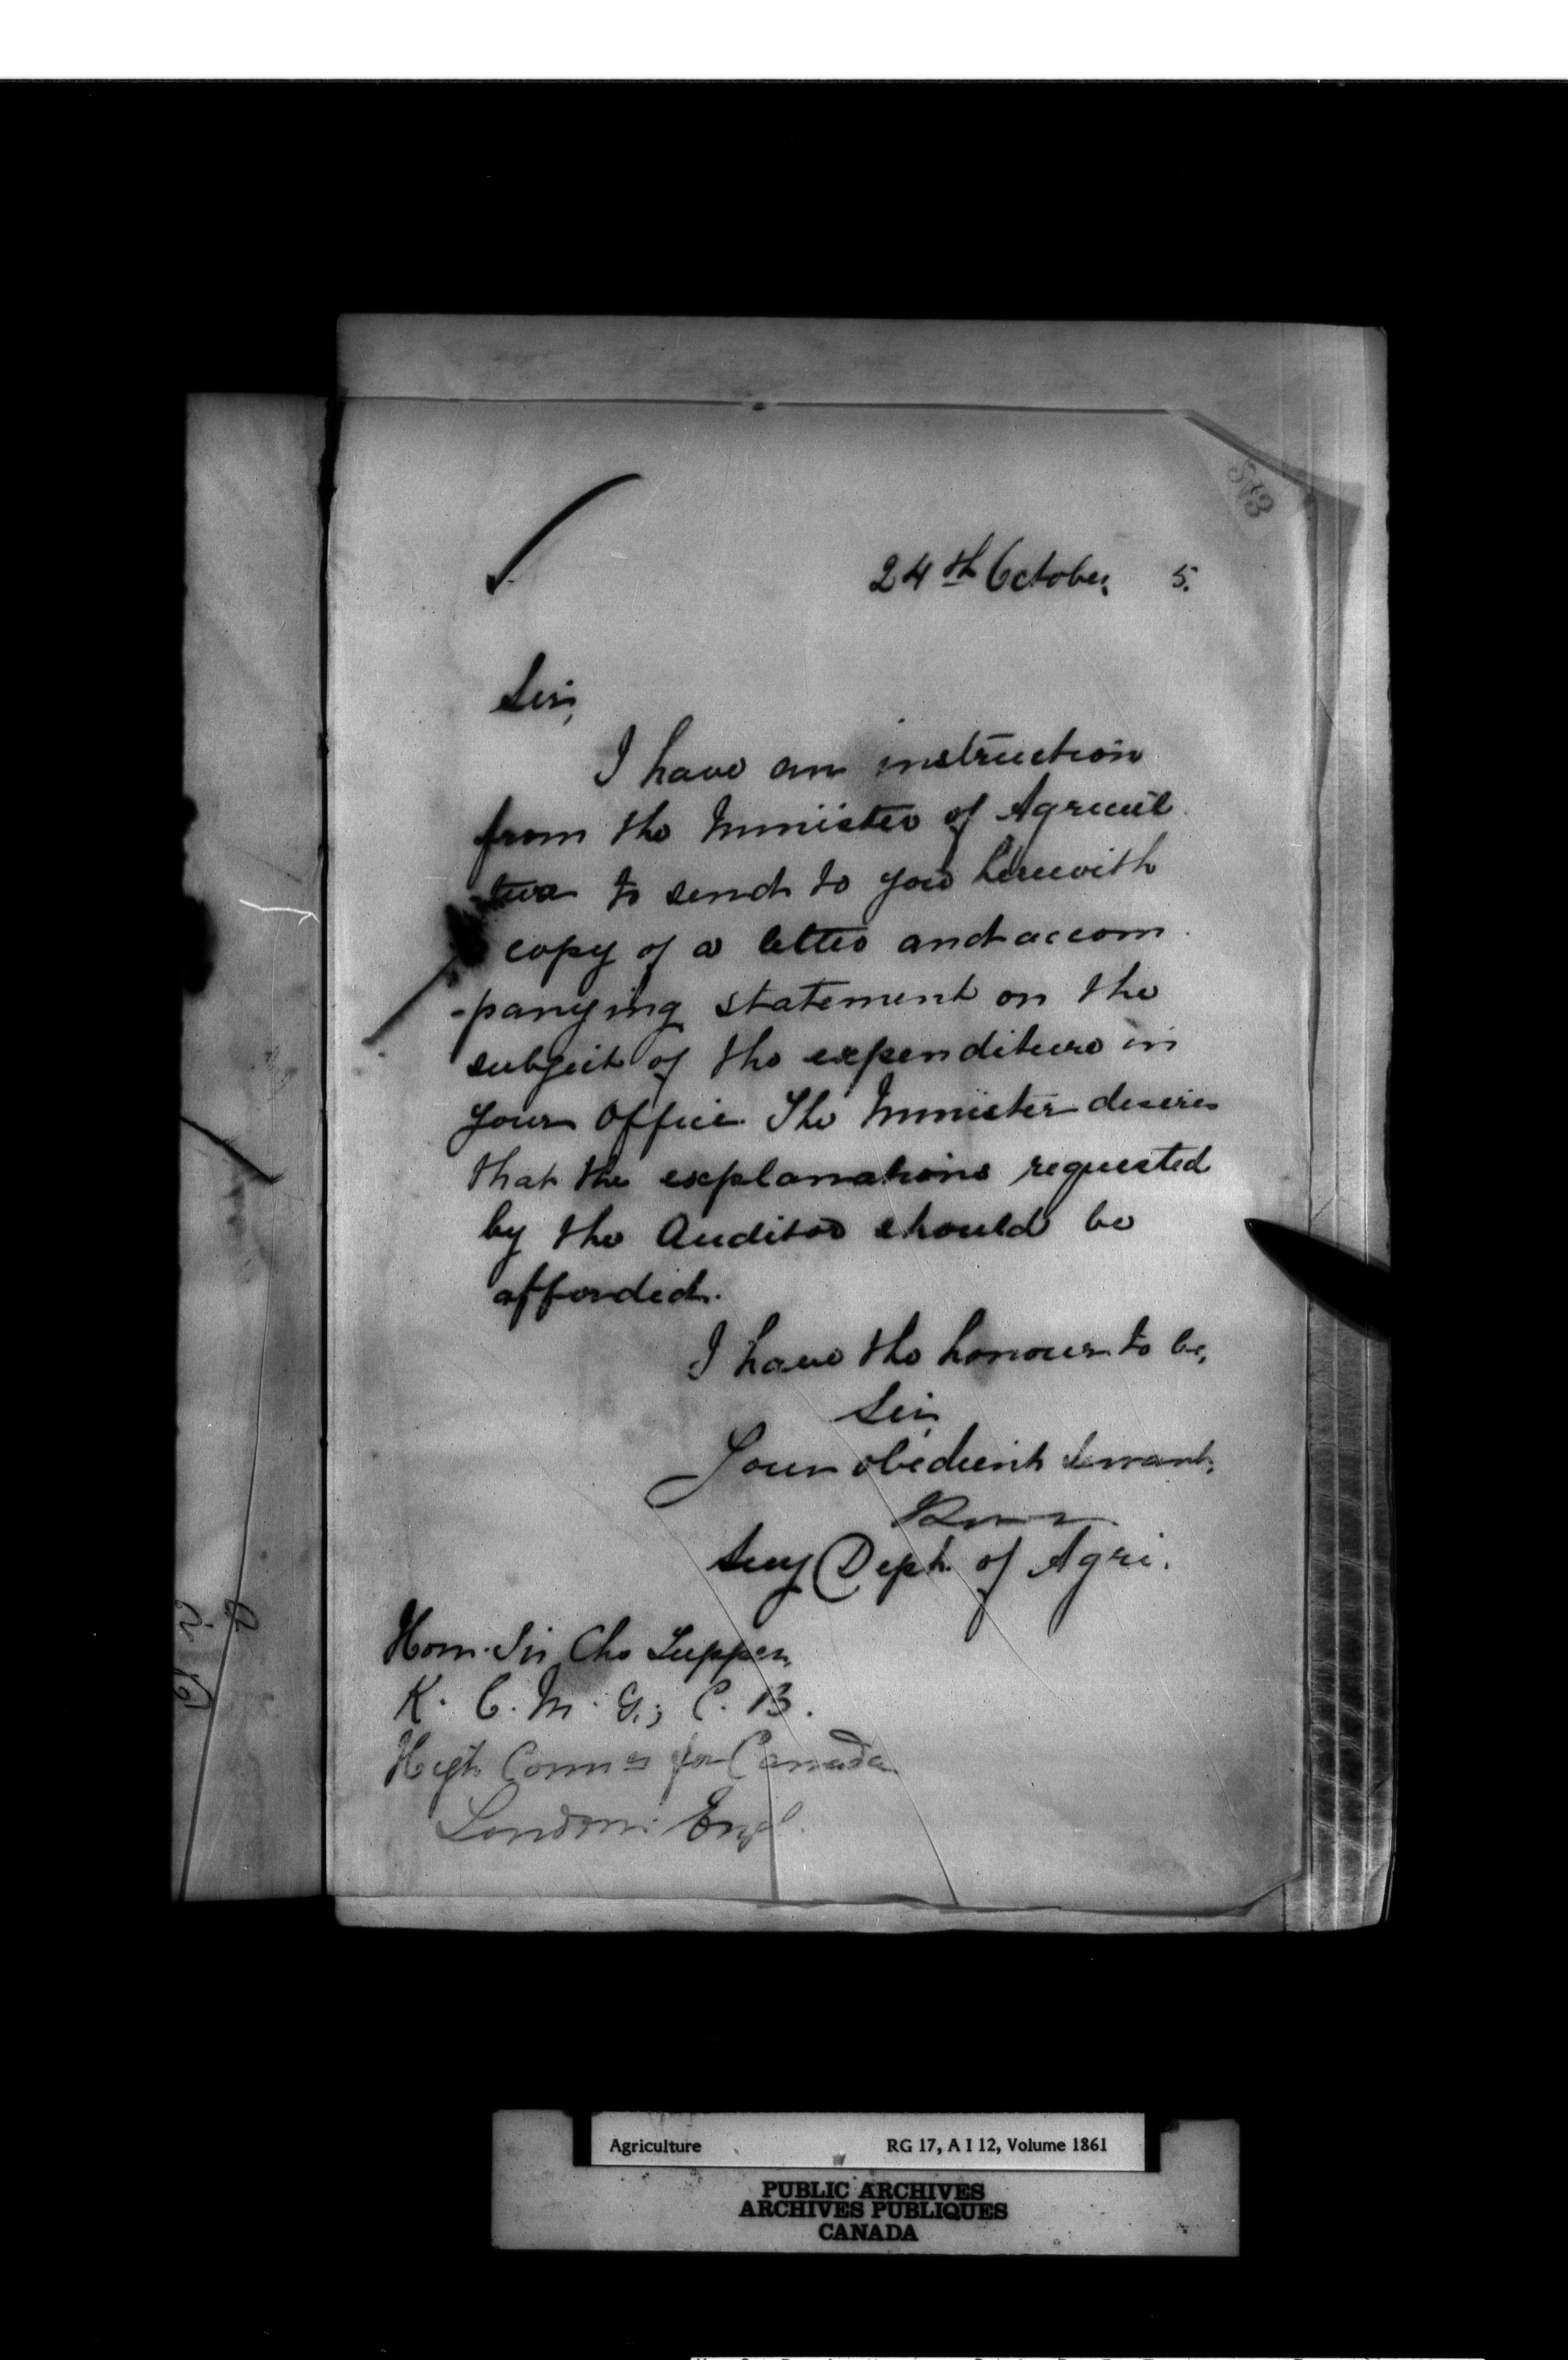 24th October, 5.
Sir,
I have an instruction
from the Minister of Agricul
-ture to send to you herewith
copy of a letter and accom
-panying statement on the
subject of the expenditure in
your Office. The Minister desires
that the explanations requested
by the Auditor should be
afforded.
I have the honour to be,
Sir,
Your obedient Servant,
Secy Dept. of Agri.
Hon. Sir Chs Tupper,
K. C. M. G.; C. B.
High Commr for Canada
London: Engl.
Agriculture RG 17, A I 12, Volume 1861
PUBLIC ARCHIVES
ARCHIVES PUBLIQUES
CANADA